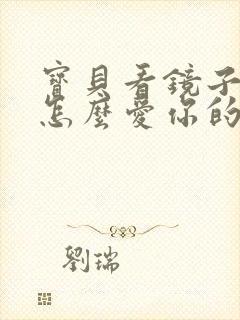 寶貝看鏡子
怎麼愛你的
劉瑞